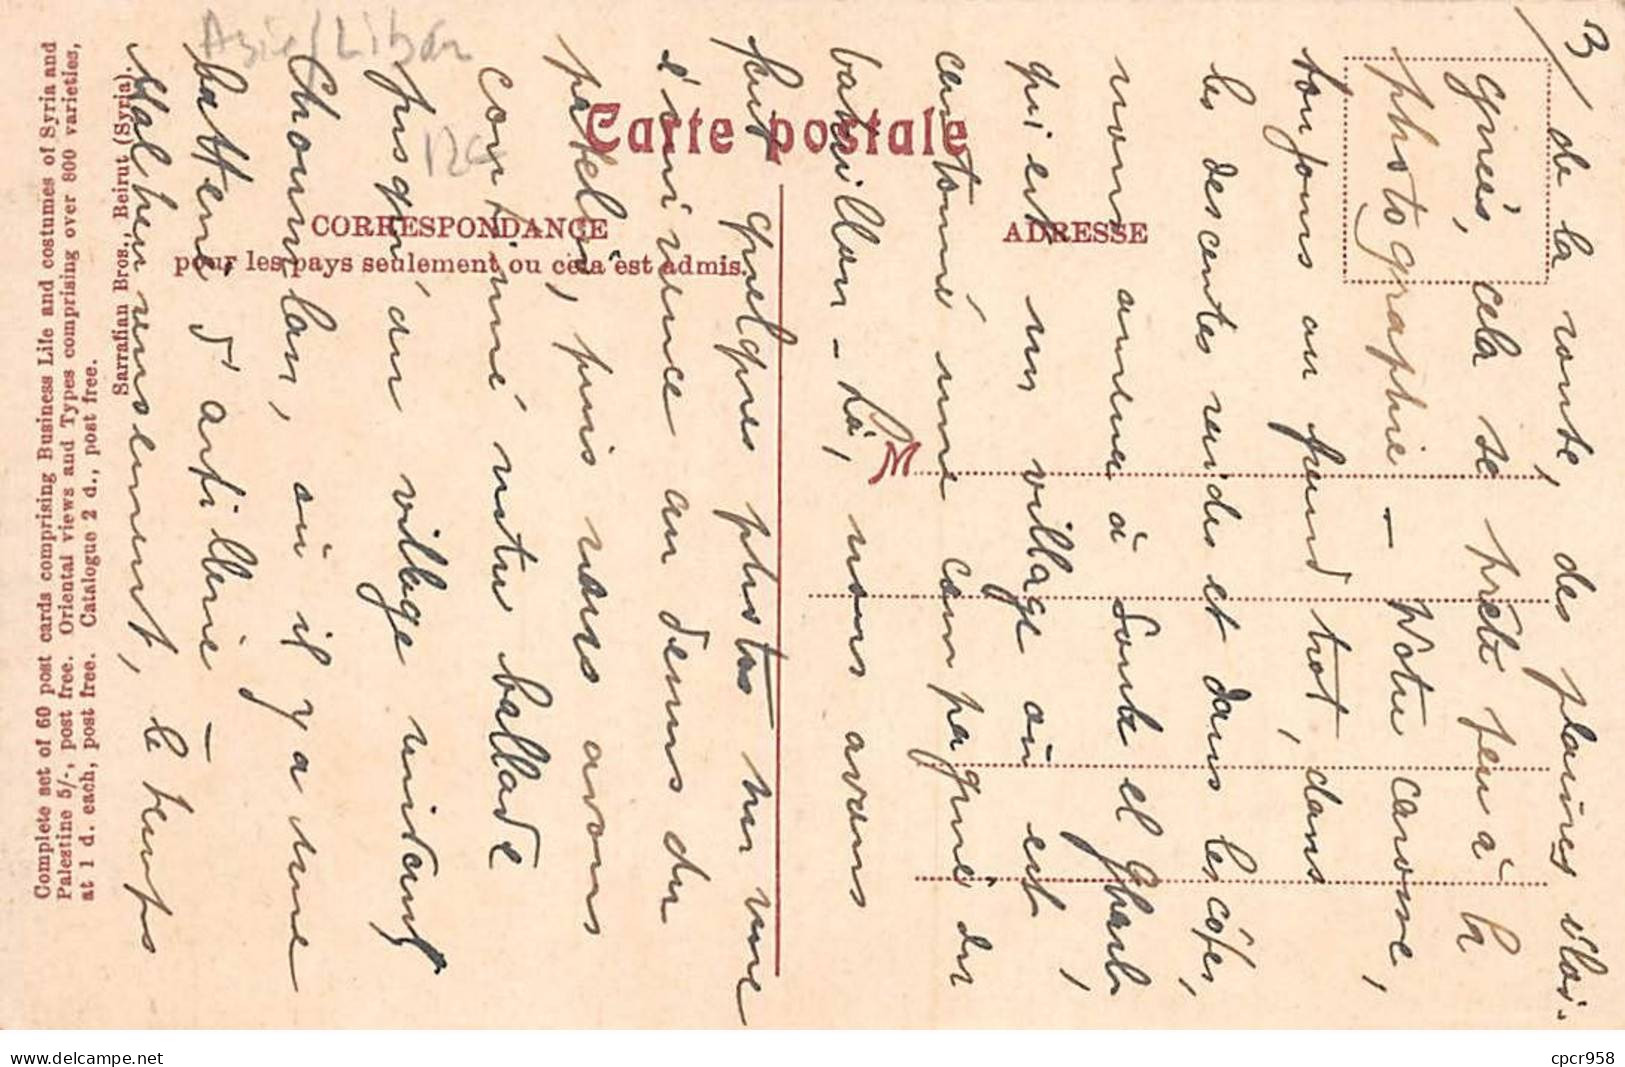 3/ de la route, des plaines éloi-
gnées, cela se prête peu à la
photographie – Notre caravane,
toujours au grand trot, dans
les descentes raides et dans les côtes,
nous amène à Souk el Gharb
qui est un village où est
cantonné une compagnie du
bataillon – Là, nous avons
fait quelques photos sur une
éminence au dessus du
patelin, puis nous avons
continué notre ballade
jusqu'au village suivant
Choumlan, où il y a une
batterie d'artillerie –
Malheureusement, le temps
Asie / Liban
12€
Carte postale
CORRESPONDANCE
pour les pays seulement ou cela est admis.
ADRESSE
M
Complete set of 60 post cards comprising Business Life and costumes of Syria and
Palestine 5/-, post free. Oriental views and Types comprising over 800 varieties,
at 1 d. each, post free. Catalogue 2 d., post free.
Sarrafian Bros., Beirut (Syria).
www.delcampe.net
cpcr958